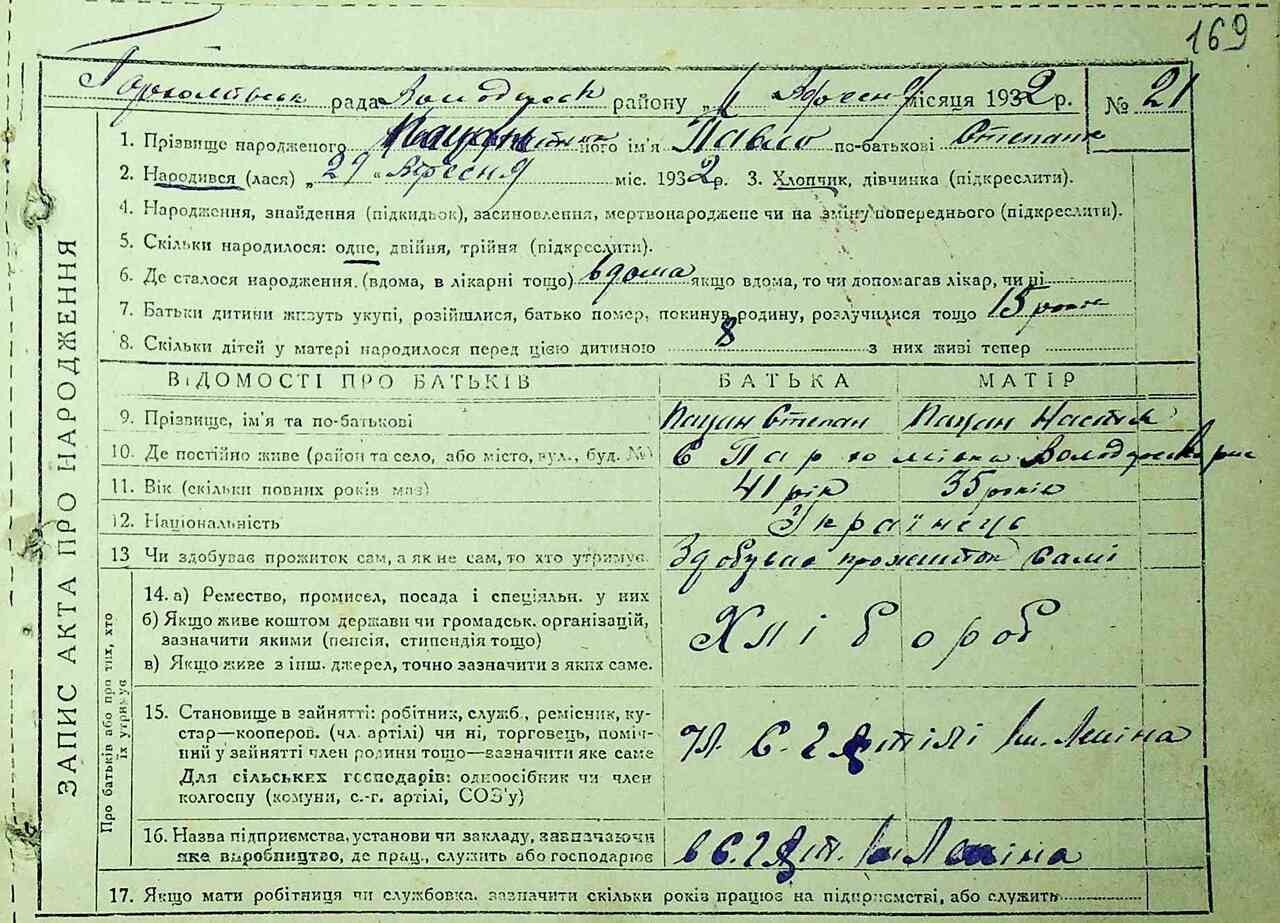 169
Пархомівськ рада Володарськ району „ 1 Вересня місяця 1932 р. № 21
1. Прізвище народженого Пацан його ім'я Павло по-батькові Степан
2. Народився (лася) „ 29 “ Вересня міс. 1932 р. 3. Хлопчик, дівчинка (підкреслити).
4. Народження, знайдення (підкидьок), засиновлення, мертвонароджене чи на зміну попереднього (підкреслити).
5. Скільки народилося: одне, двійня, трійня (підкреслити).
6. Де сталося народження. (вдома, в лікарні тощо) вдома якщо вдома, то чи допомагав лікар, чи ні
7. Батьки дитини живуть укупі, розійшлися, батько помер, покинув родину, розлучилися тощо 15 років
8. Скільки дітей у матері народилося перед цією дитиною 8 з них живі тепер
ВІДОМОСТІ ПРО БАТЬКІВ БАТЬКА МАТІР
9. Прізвище, ім'я та по-батькові Пацан Степан Пацан Настя
10. Де постійно живе (район та село, або місто, вул., буд. №) с Пархомівка Володарськ
11. Вік (скільки повних років має) 41 рік 35 років
12. Національність Українець
13 Чи здобуває прожиток сам, а як не сам, то хто утримує. Здобува прожиток самі
14. а) Ремество, промисел, посада і спеціяльн. у них
б) Якщо живе коштом держави чи громадськ. організацій,
зазначити якими (пенсія, стипендія тощо)
в) Якщо живе з інш. джерел, точно зазначити з яких саме.
Хлібороб
15. Становище в зайнятті: робітник, служб., ремісник, ку-
стар—кооперов. (чл. артілі) чи ні, торговець, поміч-
ний у зайнятті член родини тощо—зазначити яке саме
Для сільських господарів: одноосібник чи член
колгоспу (комуни, с.-г. артілі, СОЗ'у)
Чл. С. Г Артілі Ім. Леніна
16. Назва підприємства, установи чи закладу, зазначаючи
яке виробництво, де прац., служить або господарює
в С. Г Арт. Ім Леніна
17. Якщо мати робітниця чи службовка. зазначити скільки років працює на підприємстві, або служить
ЗАПИС АКТА ПРО НАРОДЖЕННЯ
Про батьків або про тих, хто
їх утримує